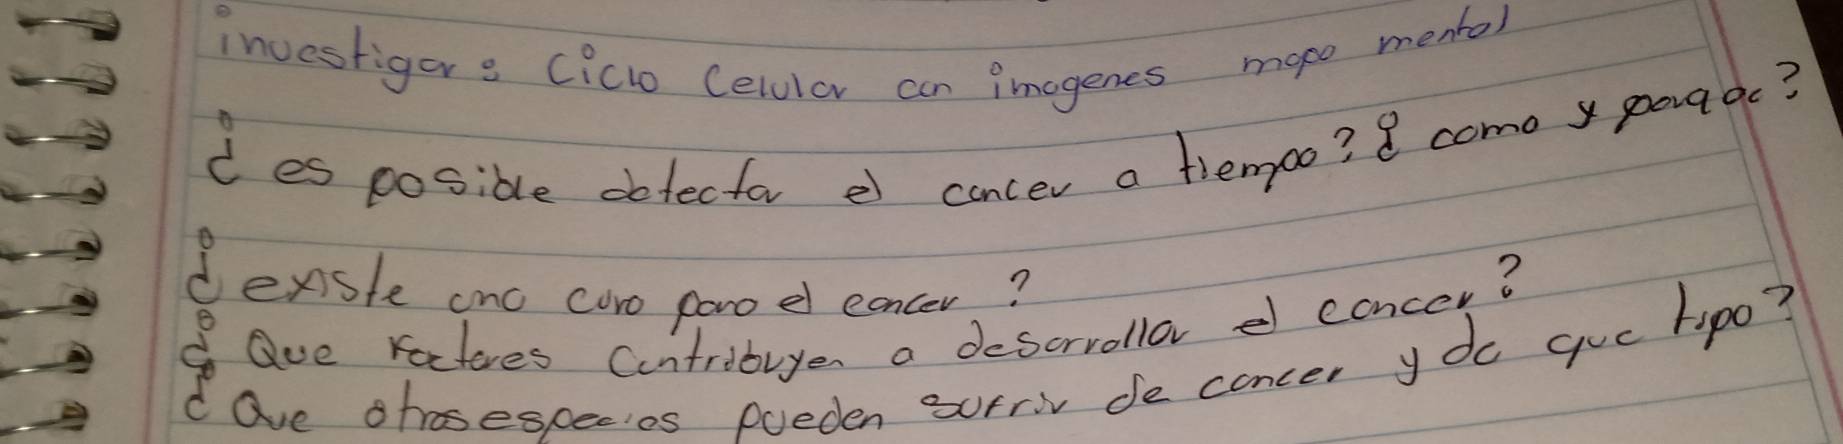 investigar: Ciclo Celular con imagenes mapo mental
¿es posible detectar el cancer a tiempo? ¿como y porque?
¿existe una cura para el cancer?
¿Que factores Contribuyen a desarrollar el cancer?
¿Que otras especies pueden sufrir de cancer y de que tipo?